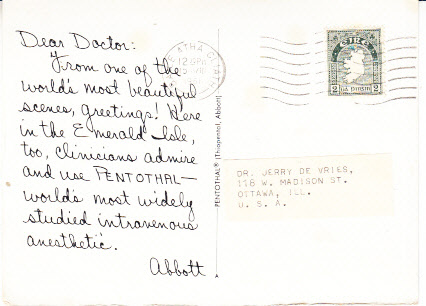 Dear Doctor:
From one of the
world's most beautiful
scenes, greetings! Here
in the Emerald Isle,
too, clinicians admire
and use PENTOTHAL—
world's most widely
studied intravenous
anesthetic.
Abbott
PENTOTHAL® (Thiopental, Abbott)
ÁTHA CLIATH
12
EIRE
2
DR. JERRY DE VRIES,
118 W. MADISON ST.
OTTAWA, ILL.
U. S. A.